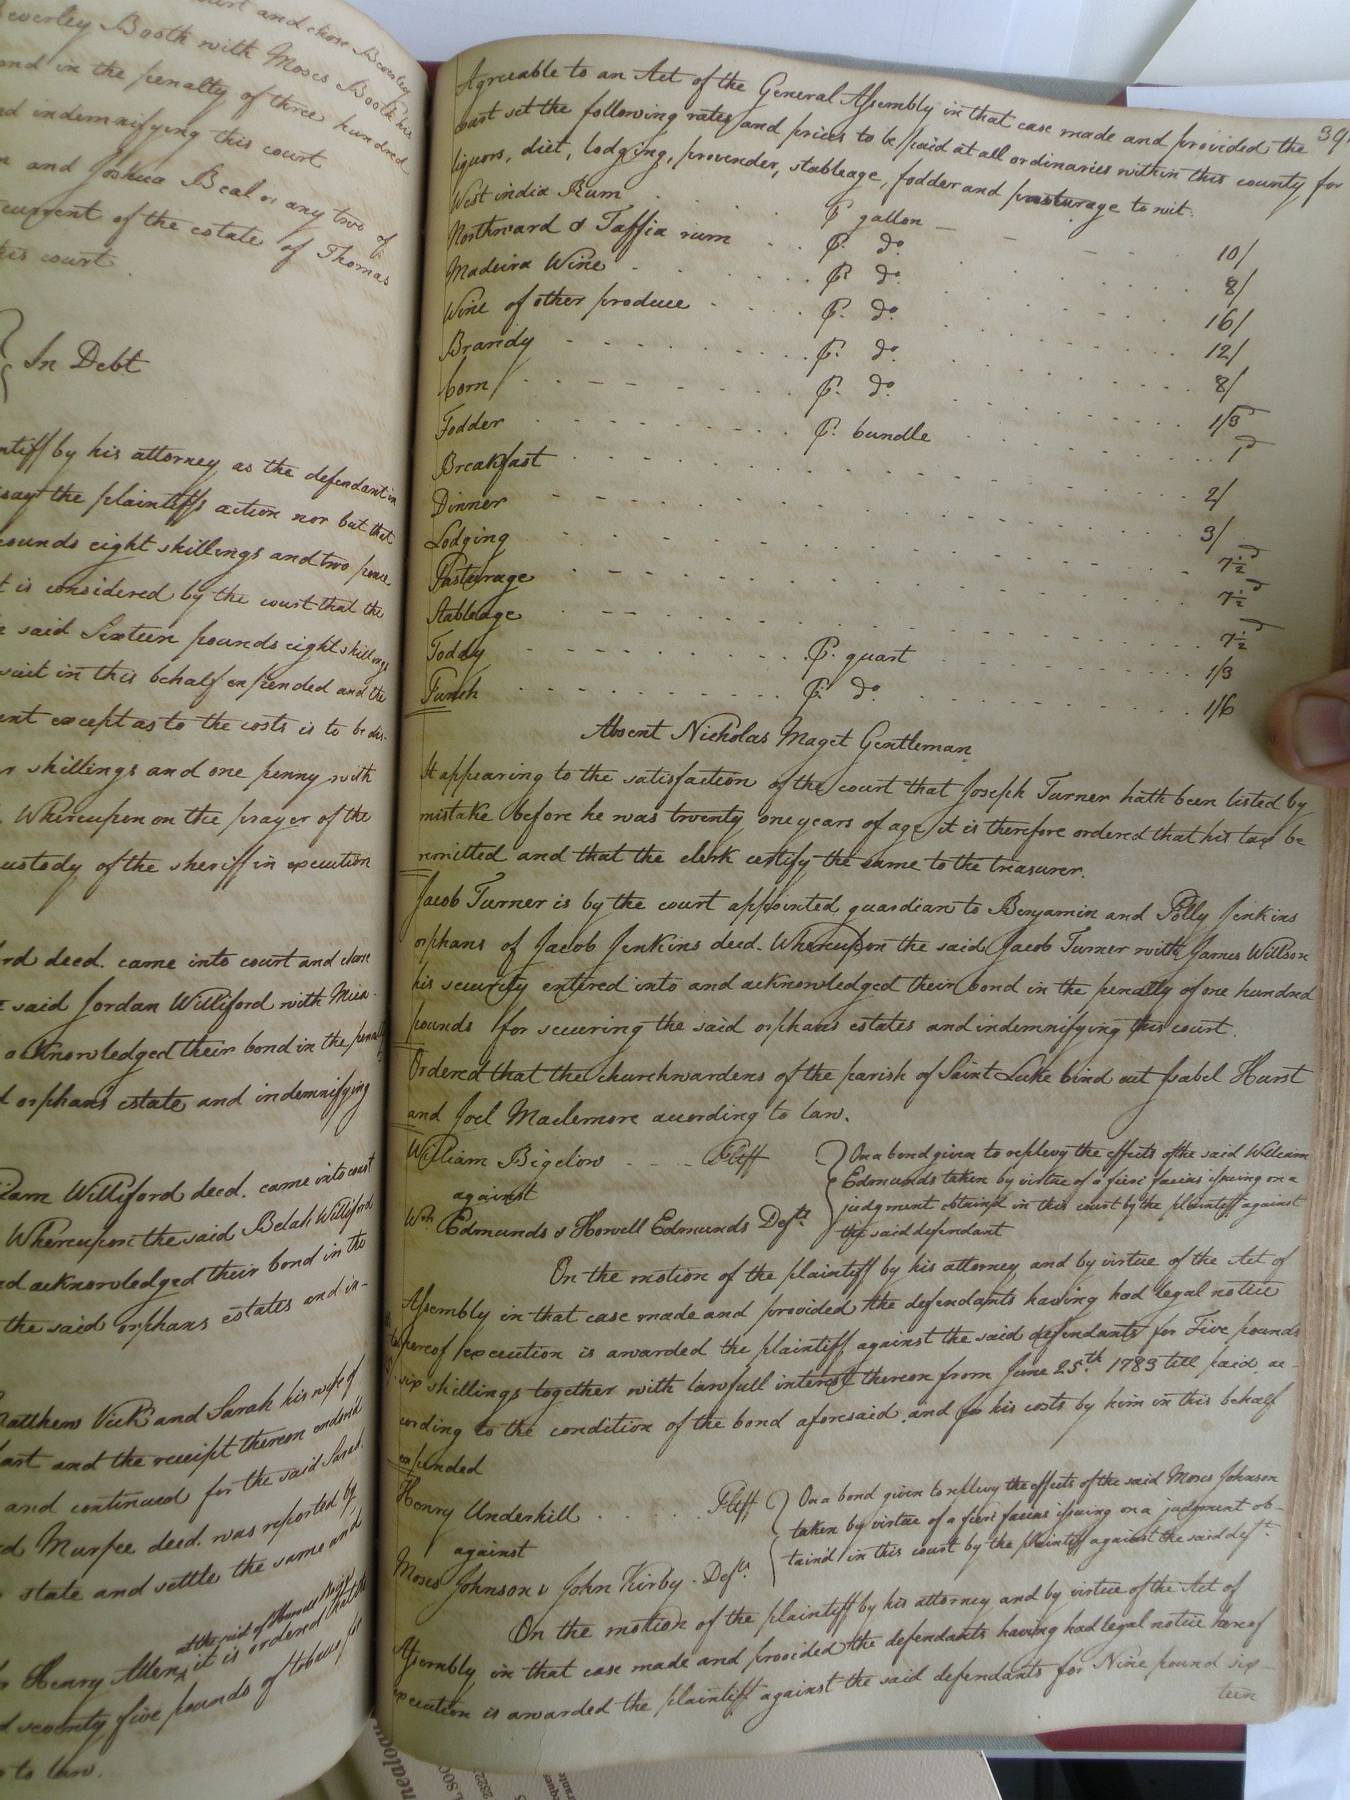 urt and chose Beverley
Beverley Booth with Moses Booth his
ond in the penalty of three hundred
nd indemnifying this court
n and Joshua Beal or any two of
current of the estate of Thomas
his court.
In Debt
ntiff by his attorney as the defendant in
say the plaintiffs action nor but that
pounds eight skillings and two pence
t is considered by the court that the
e said Sixteen pounds eight skillings
suit in this behalf expended and the
ent except as to the costs is to be dis-
r skillings and one penny with
. Whereupon on the prayer of the
custody of the sheriff in execution
rd deed. came into court and chose
e said Jordan Williford with Mica-
acknowledged their bond in the penalty
d orphans estate and indemnifying
liam Williford deed. came into court
Whereupon the said Belah Williford
nd acknowledged their bond in the
the said orphans estates and in-
Matthew Vick and Sarah his wife of
part and the receipt thereon endorsd
and continued for the said Sarah
d Murfee deed. was reported by
state and settle the same and
Henry Allen, it is ordered that the
d seventy five pounds of tobacco for
to law.
39
Agreeable to an Act of the General Assembly in that case made and provided the
court set the following rates and prices to be paid at all ordinaries within this county for
liquors, diet, lodging, provender, stableage, fodder and pasturage to wit.
West india Rum . . . . ⅌ gallon — — — 10/
Northward & Taffia rum . . ⅌. do. . . . . 8/
Madeira Wine . . . . ⅌. do. . . . . 16/
Wine of other produce . . . . ⅌. do. . . . . 12/
Brandy . . . . ⅌. do. . . . . 8/
Corn . . . . ⅌. do. . . . . 1/3d
Fodder . . . . ⅌. bundle . . . . 1d
Breakfast . . . . 2/
Dinner . . . . 3/
Lodging . . . . 7½d
Pasturage . . . . 7½d
Stableage . . . . 7½d
Toddy . . . . ⅌. quart . . . . 1/3
Punch . . . . ⅌. do. . . . . 1/6
Absent Nicholas Maget Gentleman
It appearing to the satisfaction of the court that Joseph Turner hath been listed by
mistake before he was twenty one years of age it is therefore ordered that his tax be
remitted and that the clerk certify the same to the treasurer.
Jacob Turner is by the court appointed guardian to Benjamin and Polly Jenkins
orphans of Jacob Jenkins deed. Whereupon the said Jacob Turner with James Willson
his security entered into and acknowledged their bond in the penalty of one hundred
pounds for securing the said orphans estates and indemnifying this court.
Ordered that the churchwardens of the parish of Saint Luke bind out Isabel Hurst
and Joel Maclemore according to law.
William Bigelow . . . Pltff
against
Wm. Edmunds & Howell Edmunds Defts.
On a bond given to replevy the effects of the said William
Edmunds taken by virtue of a fieri facias issuing on a
judgment obtaind in this court by the plaintiff against
the said defendant
On the motion of the plaintiff by his attorney and by virtue of the Act of
Assembly in that case made and provided the defendants having had legal notice
hereof execution is awarded the plaintiff against the said defendants for Five pounds
six skillings together with lawfull interest thereon from June 25th. 1783 till paid ac-
cording to the condition of the bond aforesaid and for his costs by him in this behalf
expended
Henry Underhill . . . . . Pltff
against
Moses Johnson & John Kirby - Defts.
On a bond given to replevy the effects of the said Moses Johnson
taken by virtue of a fieri facias issuing on a judgment ob-
taind in this court by the plaintiff against the said deft.
On the motion of the plaintiff by his attorney and by virtue of the Act of
Assembly in that case made and provided the defendants having had legal notice hereof
execution is awarded the plaintiff against the said defendants for Nine pound six-
teen